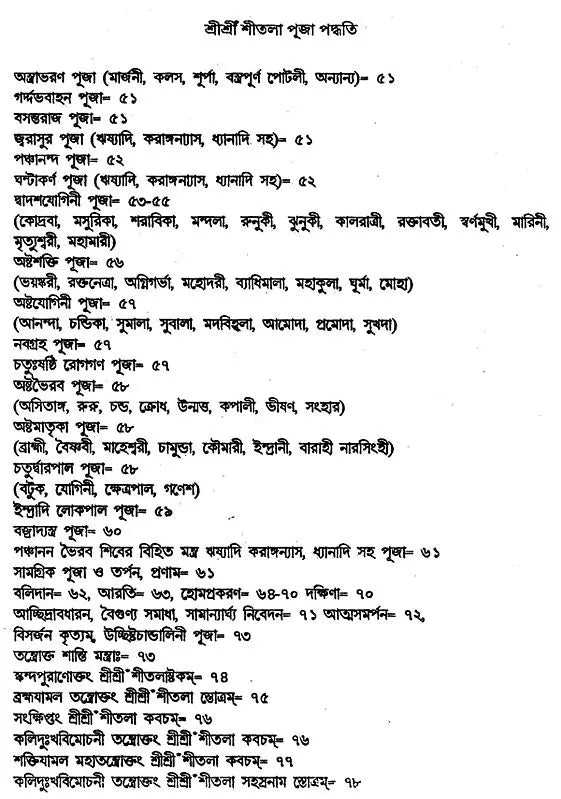 শ্রীশ্রীঁ শীতলা পূজা পদ্ধতি
অস্ত্রাভরণ পূজা (মার্জনী, কলস, শূর্পা, বস্ত্রপূর্ণ পোটলী, অন্যান্য)= ৫১
গর্দ্দভবাহন পূজা= ৫১
বসন্তরাজ পূজা= ৫১
জ্বরাসুর পূজা (ঋষ্যাদি, করাঙ্গন্যাস, ধ্যানাদি সহ)= ৫১
পঞ্চানন্দ পূজা= ৫২
ঘন্টাকর্ণ পূজা (ঋষ্যাদি, করাঙ্গন্যাস, ধ্যানাদি সহ)= ৫২
দ্বাদশযোগিনী পূজা= ৫৩-৫৫
(কোদ্রবা, মসুরিকা, শরাবিকা, মন্দলা, রুনুকী, ঝুনুকী, কালরাত্রী, রক্তাবতী, স্বর্ণমুখী, মারিনী,
মৃত্যুশ্বরী, মহামারী)
অষ্টশক্তি পূজা= ৫৬
(ভয়ঙ্করী, রক্তনেত্রা, অগ্নিগর্ভা, মহোদরী, ব্যাধিমালা, মহাকুলা, ঘূর্মা, মোহা)
অষ্টযোগিনী পূজা= ৫৭
(আনন্দা, চন্ডিকা, সুমালা, সুবালা, মদবিহ্বলা, আমোদা, প্রমোদা, সুখদা)
নবগ্রহ পূজা= ৫৭
চতুঃষষ্ঠি রোগগণ পূজা= ৫৭
অষ্টভৈরব পূজা= ৫৮
(অসিতাঙ্গ, রুরু, চন্ড, ক্রোধ, উন্মত্ত, কপালী, ভীষণ, সংহার)
অষ্টমাতৃকা পূজা= ৫৮
(ব্রাহ্মী, বৈষ্ণবী, মাহেশ্বরী, চামুন্ডা, কৌমারী, ইন্দ্রানী, বারাহী নারসিংহী)
চতুর্দ্বারপাল পূজা= ৫৮
(বটুক, যোগিনী, ক্ষেত্রপাল, গণেশ)
ইন্দ্রাদি লোকপাল পূজা= ৫৯
বজ্রাদ্যস্ত্র পূজা= ৬০
পঞ্চানন ভৈরব শিবের বিহিত মন্ত্র ঋষ্যাদি করাঙ্গন্যাস, ধ্যানাদি সহ পূজা= ৬১
সামগ্রিক পূজা ও তর্পন, প্রণাম= ৬১
বলিদান= ৬২, আরতি= ৬৩, হোমপ্রকরণ= ৬৪-৭০ দক্ষিণা= ৭০
আচ্ছিদ্রাবধারন, বৈগুণ্য সমাধা, সামান্যার্ঘ্য নিবেদন= ৭১ আত্মসমর্পন= ৭২,
বিসর্জন কৃত্যম্, উচ্ছিষ্টচান্ডালিনী পূজা= ৭৩
তন্ত্রোক্ত শান্তি মন্ত্রাঃ= ৭৩
স্কন্দপুরাণোক্তং শ্রীশ্রীঁ শীতলাষ্টকম্= ৭৪
ব্রহ্মযামল তন্ত্রোক্তং শ্রীশ্রীঁ শীতলা স্তোত্রম্= ৭৫
সংক্ষিপ্তং শ্রীশ্রীঁ শীতলা কবচম্= ৭৬
কলিদুঃখবিমোচনী তন্ত্রোক্তং শ্রীশ্রীঁ শীতলা কবচম্= ৭৬
শক্তিযামল মহাতন্ত্রোক্তং শ্রীশ্রীঁ শীতলা কবচম্= ৭৭
কলিদুঃখবিমোচনী তন্ত্রোক্তং শ্রীশ্রীঁ শীতলা সহস্রনাম স্তোত্রম্= ৭৮